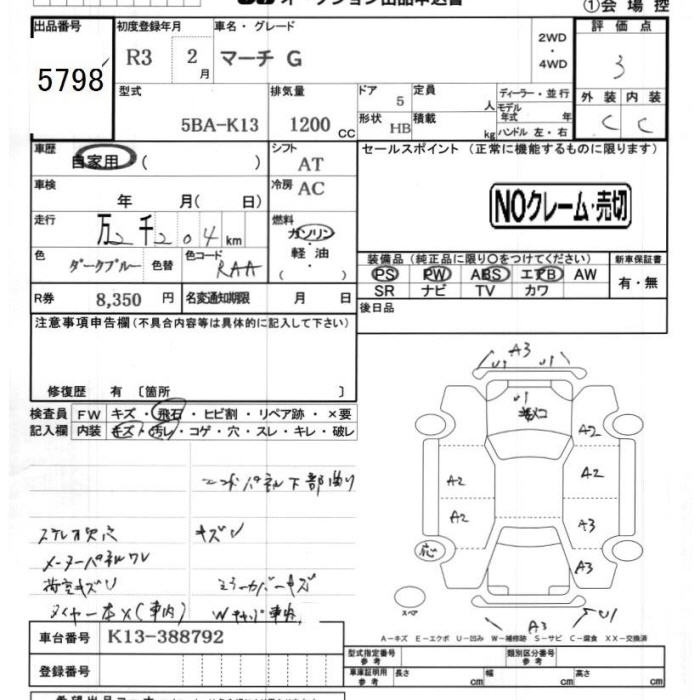 オークション出品申込書
①会場控
出品番号
5798
初度登録年月
R3 2月
車名・グレード
マーチ G
2WD
・
4WD
評価点
3
外装 内装
C C
型式
5BA-K13
排気量
1200cc
ドア
5
形状
HB
定員
人
積載
kg
ディーラー・並行
モデル年式 年
ハンドル 左・右
車歴
自家用( )
シフト
AT
車検
年 月( 日)
冷房
AC
走行
万2千204km
燃料
ガソリン
・
軽油
( )
色
ダークブルー
色替
色コード
RAA
R券 8,350円
名変通知期限 月 日
セールスポイント(正常に機能するものに限ります)
NOクレーム・売切
装備品(純正品に限り○をつけてください)
PS PW ABS エアB AW
SR ナビ TV カワ
新車保証書
有・無
後日品
注意事項申告欄(不具合内容等は具体的に記入して下さい)
修復歴 有〔箇所 〕
検査員記入欄
FW キズ・飛石・ヒビ割・リペア跡・×要
内装 キズ・汚レ・コゲ・穴・スレ・キレ・破レ
エンドパネル下部曲り
ステレオ欠穴 キズU
メーターパネルワレ
荷室キズU ミラーカバーキズ
タイヤ一本X(車内) Wキャップ車内
A3
U1 U1
U1
A2
A2 A2
A2 A3
応 A3
スペア
A3 U1
A-キズ E-エクボ U-凹み W-補修跡 S-サビ C-腐食 XX-交換済
車台番号 K13-388792
登録番号
型式指定番号
参考
類別区分番号
参考
車庫証明用
参考
長さ cm
幅 cm
高さ cm